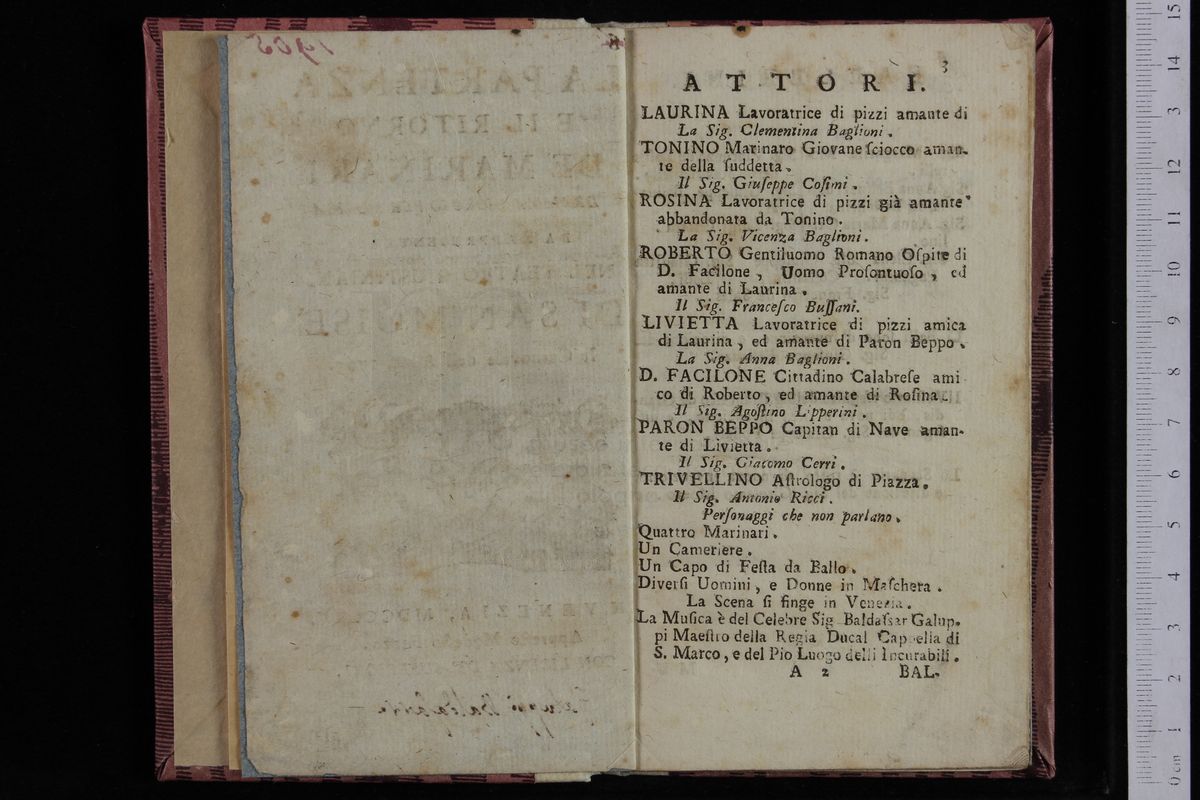 3
ATTORI.
LAURINA Lavoratrice di pizzi amante di
La Sig. Clementina Baglioni.
TONINO Marinaro Giovane ſciocco aman-
te della ſuddetta.
Il Sig. Giuſeppe Coſimi.
ROSINA Lavoratrice di pizzi già amante
abbandonata da Tonino.
La Sig. Vicenza Baglioni.
ROBERTO Gentiluomo Romano Oſpite di
D. Facilone, Uomo Proſontuoſo, ed
amante di Laurina.
Il Sig. Franceſco Buſſani.
LIVIETTA Lavoratrice di pizzi amica
di Laurina, ed amante di Paron Beppo.
La Sig. Anna Baglioni.
D. FACILONE Cittadino Calabreſe ami
co di Roberto, ed amante di Roſina.
Il Sig. Agoſtino Lipperini.
PARON BEPPO Capitan di Nave aman-
te di Livietta.
Il Sig. Giacomo Cerri.
TRIVELLINO Aſtrologo di Piazza.
Il Sig. Antonio Ricci.
Perſonaggi che non parlano.
Quattro Marinari.
Un Cameriere.
Un Capo di Feſta da Ballo.
Diverſi Uomini, e Donne in Maſchera.
La Scena ſi finge in Venezia.
La Muſica è del Celebre Sig. Baldaſsar Galup-
pi Maeſtro della Regia Ducal Cappella di
S. Marco, e del Pio Luogo delli Incurabili.
A 2 BAL-
0 cm 1 2 3 4 5 6 7 8 9 10 11 12 13 14 15